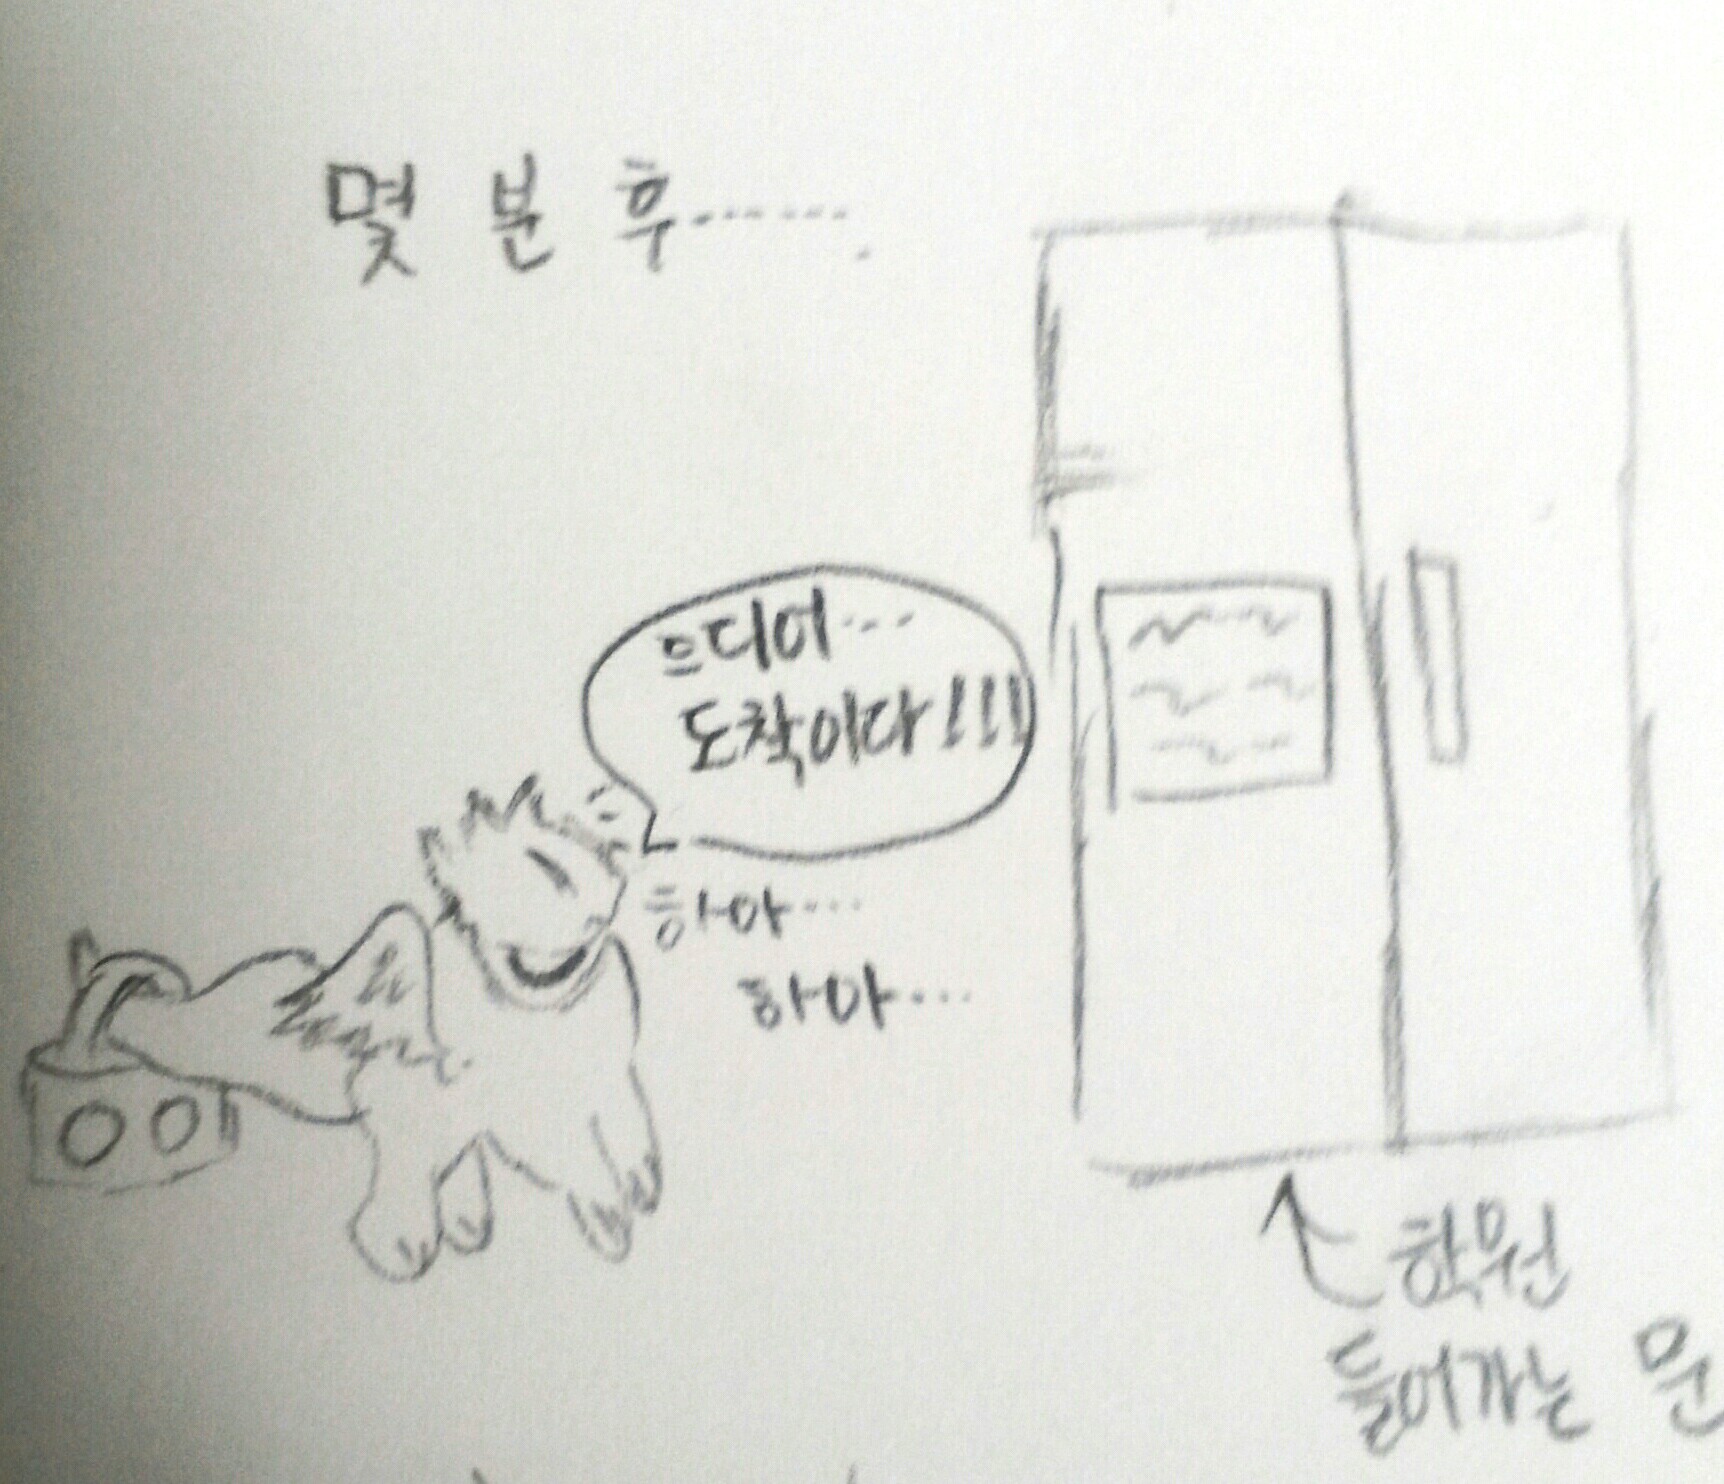 몇 분 후.......
으디어...
도착이다!!!
하아...
하아...
학원
들어가는 문